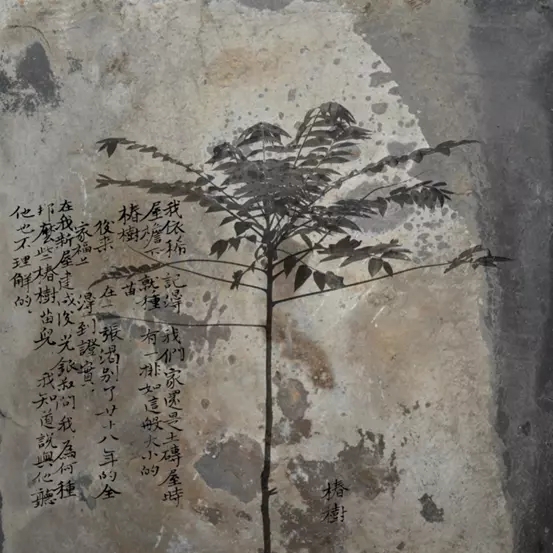 我依稀記得我們家還是土磚屋時
屋檐下就種有一排如這般大小的
椿樹苗
後來在一張濶别了廿十八年的全
家福上得到證實。
在我新屋建成後光銀叔問我為何種
那麼些椿樹苗兒我知道說與他聽
他也不理解的。
椿樹